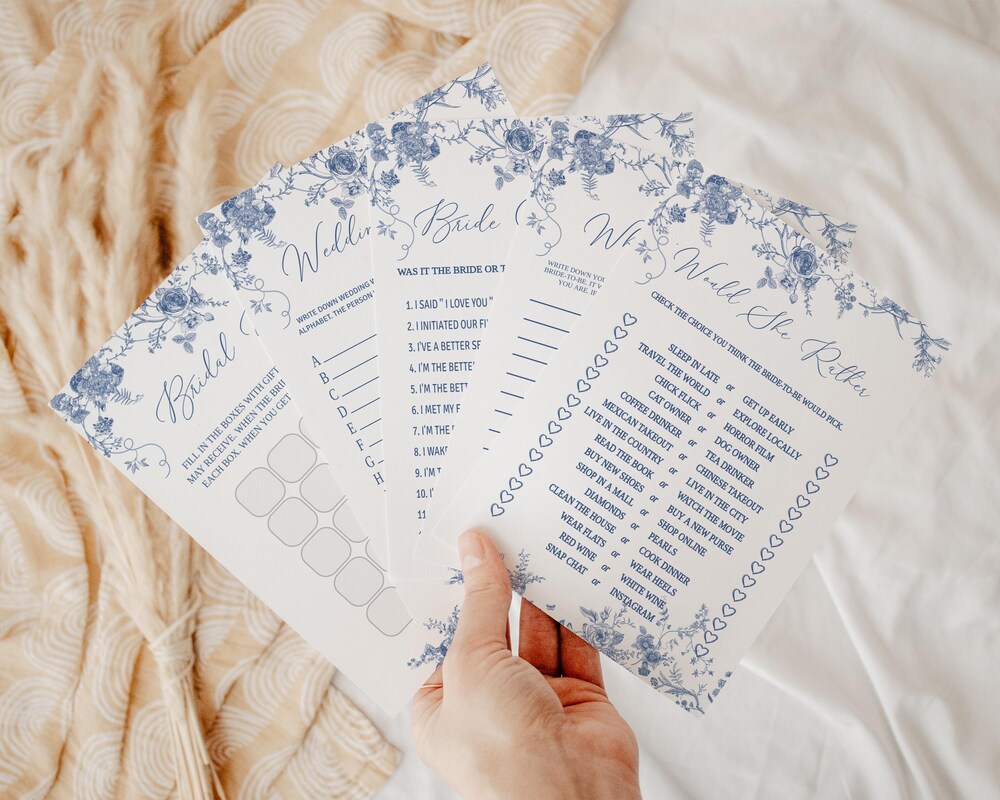 Bridal
FILL IN THE BOXES WITH GIFT
MAY RECEIVE. WHEN THE BRI
EACH BOX. WHEN YOU GET
Weddin
WRITE DOWN WEDDING
ALPHABET. THE PERSON
A
B
C
D
E
F
G
H
Bride
WAS IT THE BRIDE OR T
1. I SAID " I LOVE YOU "
2. I INITIATED OUR FI
3. I'VE A BETTER SE
4. I'M THE BETTE
5. I'M THE BETT
6. I MET MY F
7. I'M THE
8. I WAKE
9. I'M T
10. I'
11
Wh
WRITE DOWN YO
BRIDE-TO-BE. IT
YOU ARE. IF
Would She Rather
CHECK THE CHOICE YOU THINK THE BRIDE-TO-BE WOULD PICK.
SLEEP IN LATE or GET UP EARLY
TRAVEL THE WORLD or EXPLORE LOCALLY
CHICK FLICK or HORROR FILM
CAT OWNER or DOG OWNER
COFFEE DRINKER or TEA DRINKER
MEXICAN TAKEOUT or CHINESE TAKEOUT
LIVE IN THE COUNTRY or LIVE IN THE CITY
READ THE BOOK or WATCH THE MOVIE
BUY NEW SHOES or BUY A NEW PURSE
SHOP IN A MALL or SHOP ONLINE
DIAMONDS or PEARLS
CLEAN THE HOUSE or COOK DINNER
WEAR FLATS or WEAR HEELS
RED WINE or WHITE WINE
SNAP CHAT or INSTAGRAM